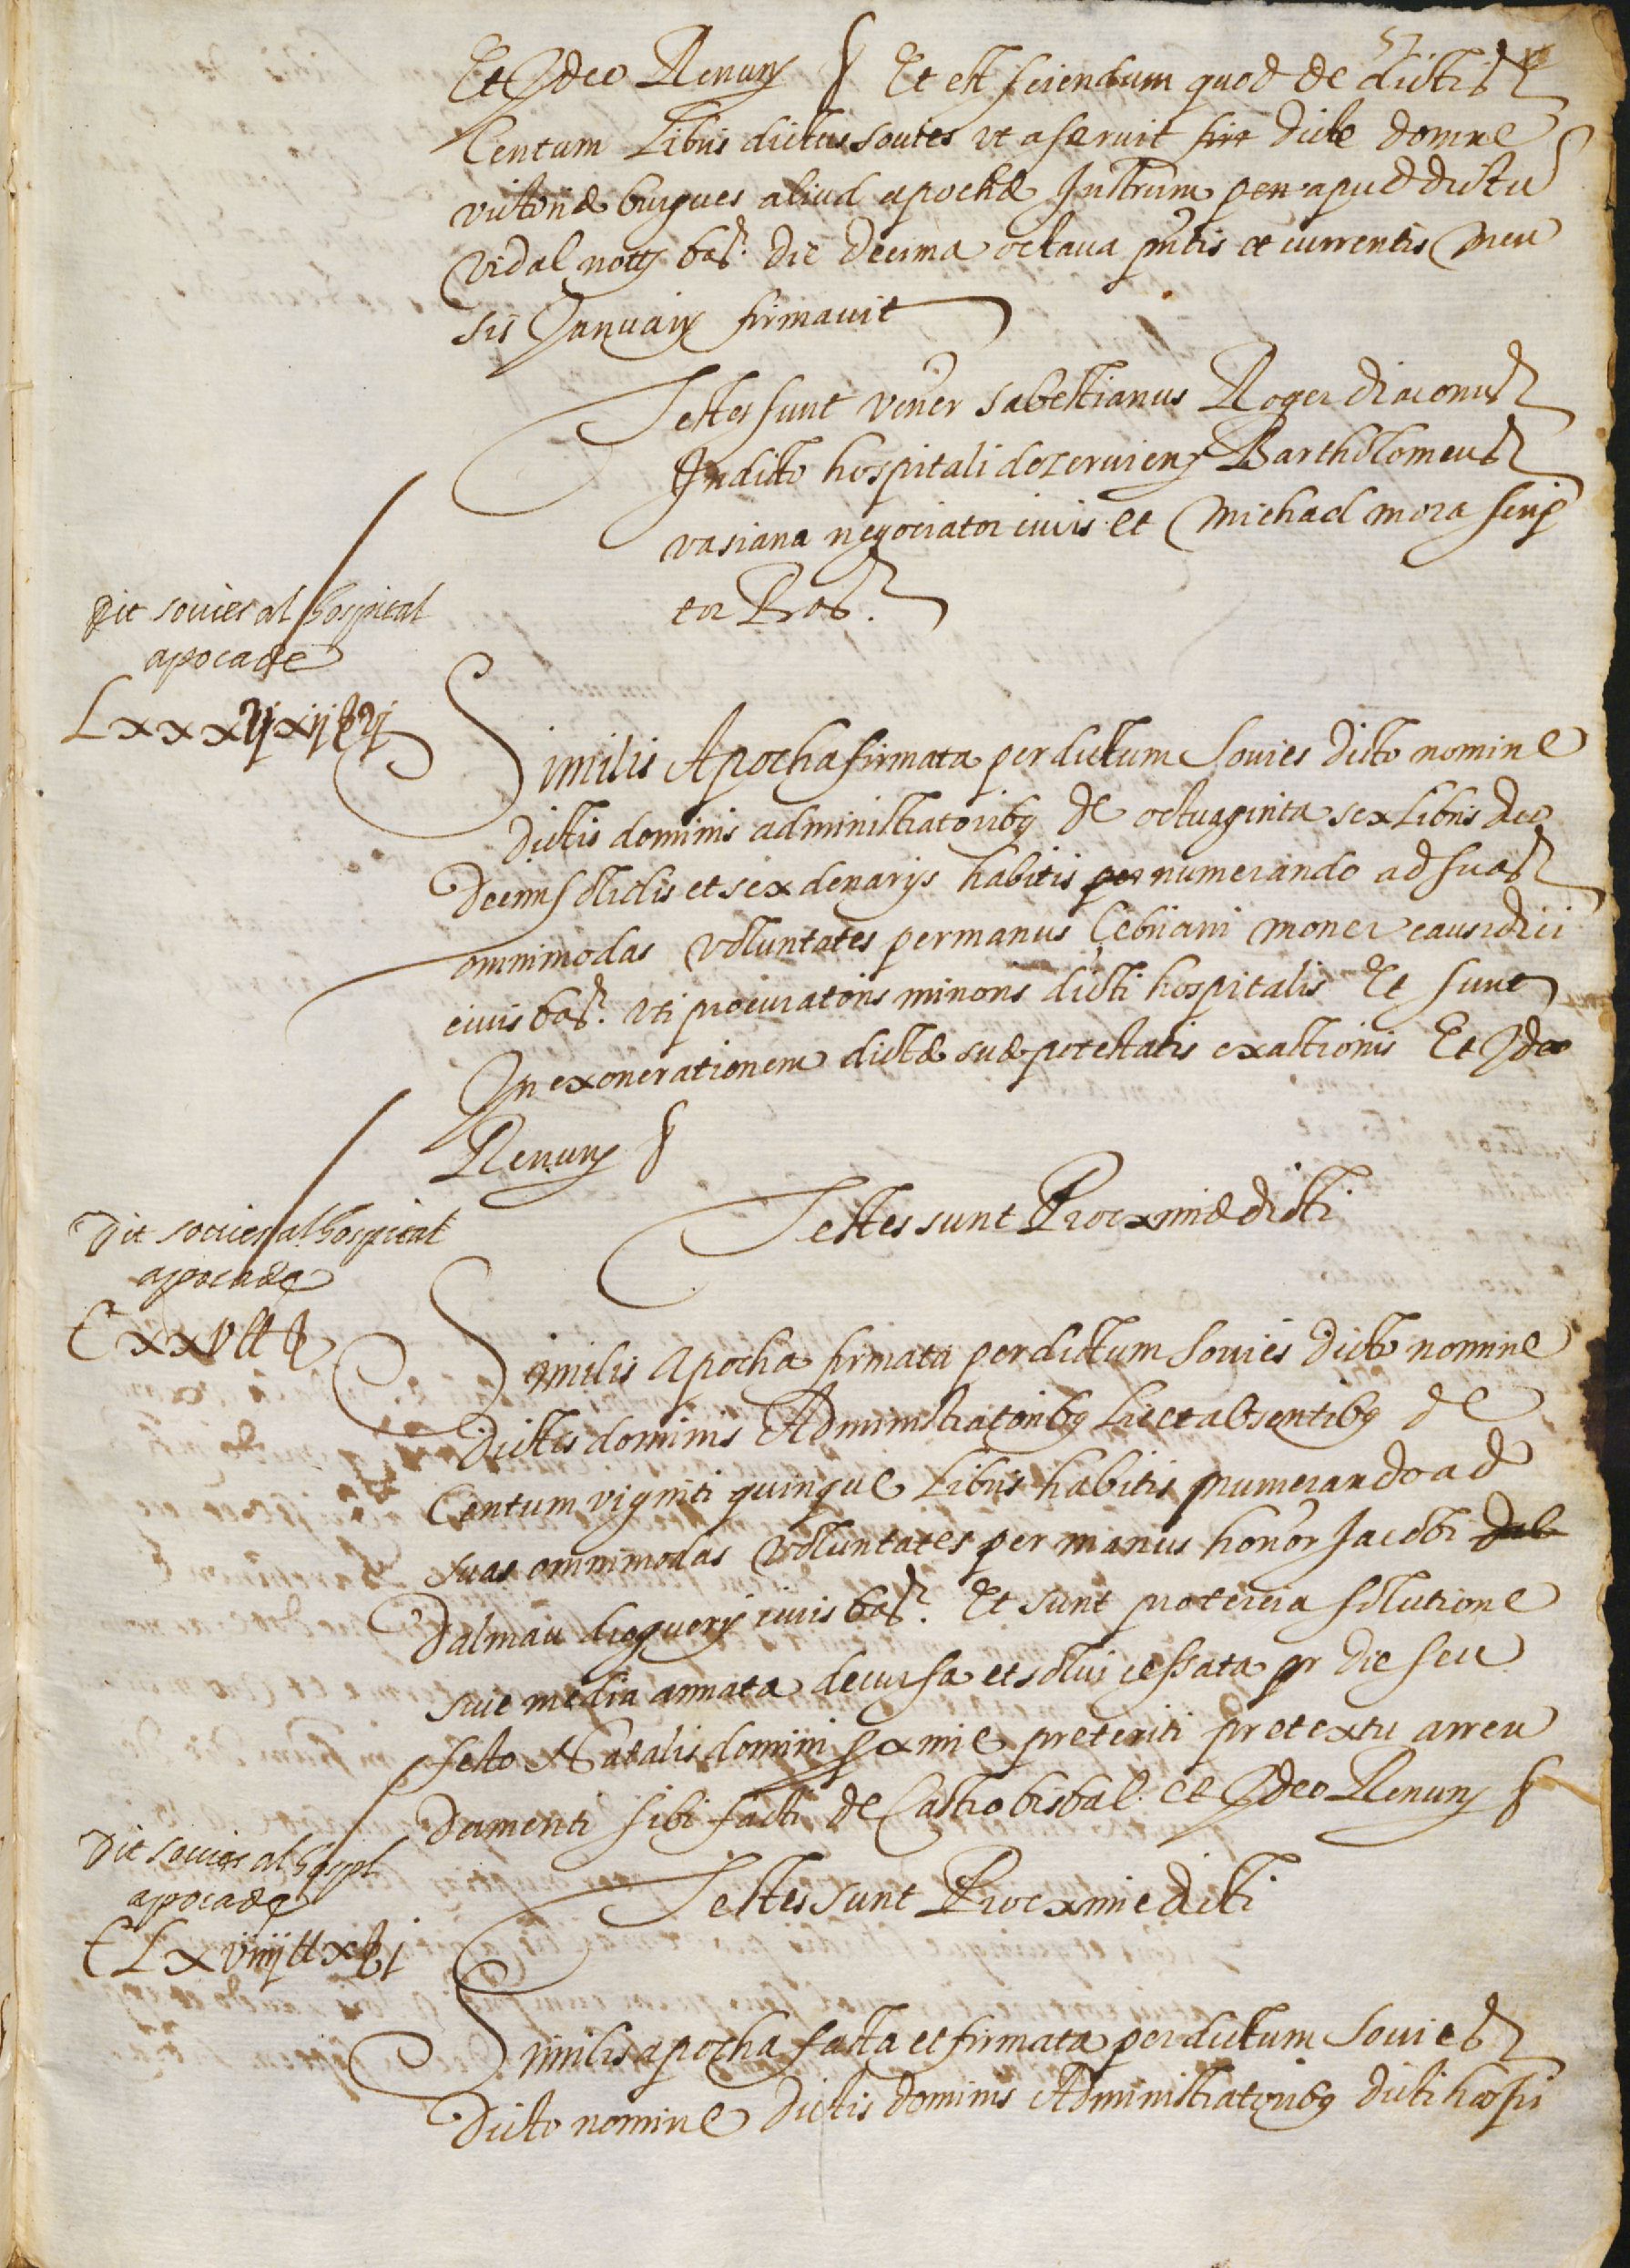 57
Et Ideo Renuns § Et est sciendum quod de dictis
Centum Libris dictus Souies vt aseruit dicte domne
victoriæ burgues aliud apochæ Instrum pen apud dictu
Vidal notm bar. die decima octaua pntis et currentis men
sis Januarij firmauit
Testes sunt vener Sabestianus Roger diaconus
In dicto hospitali deseruiens Bartholomeus
vasiana negociator ciuis et Michael mora scrip
tor Bar.
Dit souies al hospital
apoca de
Lxxxvj xij § vj
Similis Apocha firmata per dictum Souies dicto nomine
dictis dominis administratoribq de octuaginta sex Libris duo
decim solidis et sex denarijs habitis numerando ad suas
omnimodas voluntates per manus Cebriani moner causidici
ciuis bar. vti procuratoris minoris dicti hospitalis Et sunt
In exonerationem dictæ suæ potestatis exactionis Et Ideo
Renuns §
Testes sunt Proxime dicti
Dit souies al hospital
apoca de
Cxxv ll §
Similis apocha firmata per dictum Souies dicto nomine
dictis dominis Administratoribq Licet absentibq de
Centum viginti quinque Libris habitis numerando ad
suas omnimodas voluntates per manus honor Jacobi
Dalmau droguerij ciuis bar. Et sunt pro tercia solutione
siue media annata decursa et solui cessata pr die seu
festo Natalis domini pxime preteriti pretextu arren
damenti sibi facti de Castro bisbal. et Ideo Renuns §
Testes sunt Proxime dicti
Dit souies al hospl
apoca de
CLxviiij ll x § j
Similis apocha facta et firmata per dictum Souies
dicto nomine dictis dominis Administratoribq dicti hospi